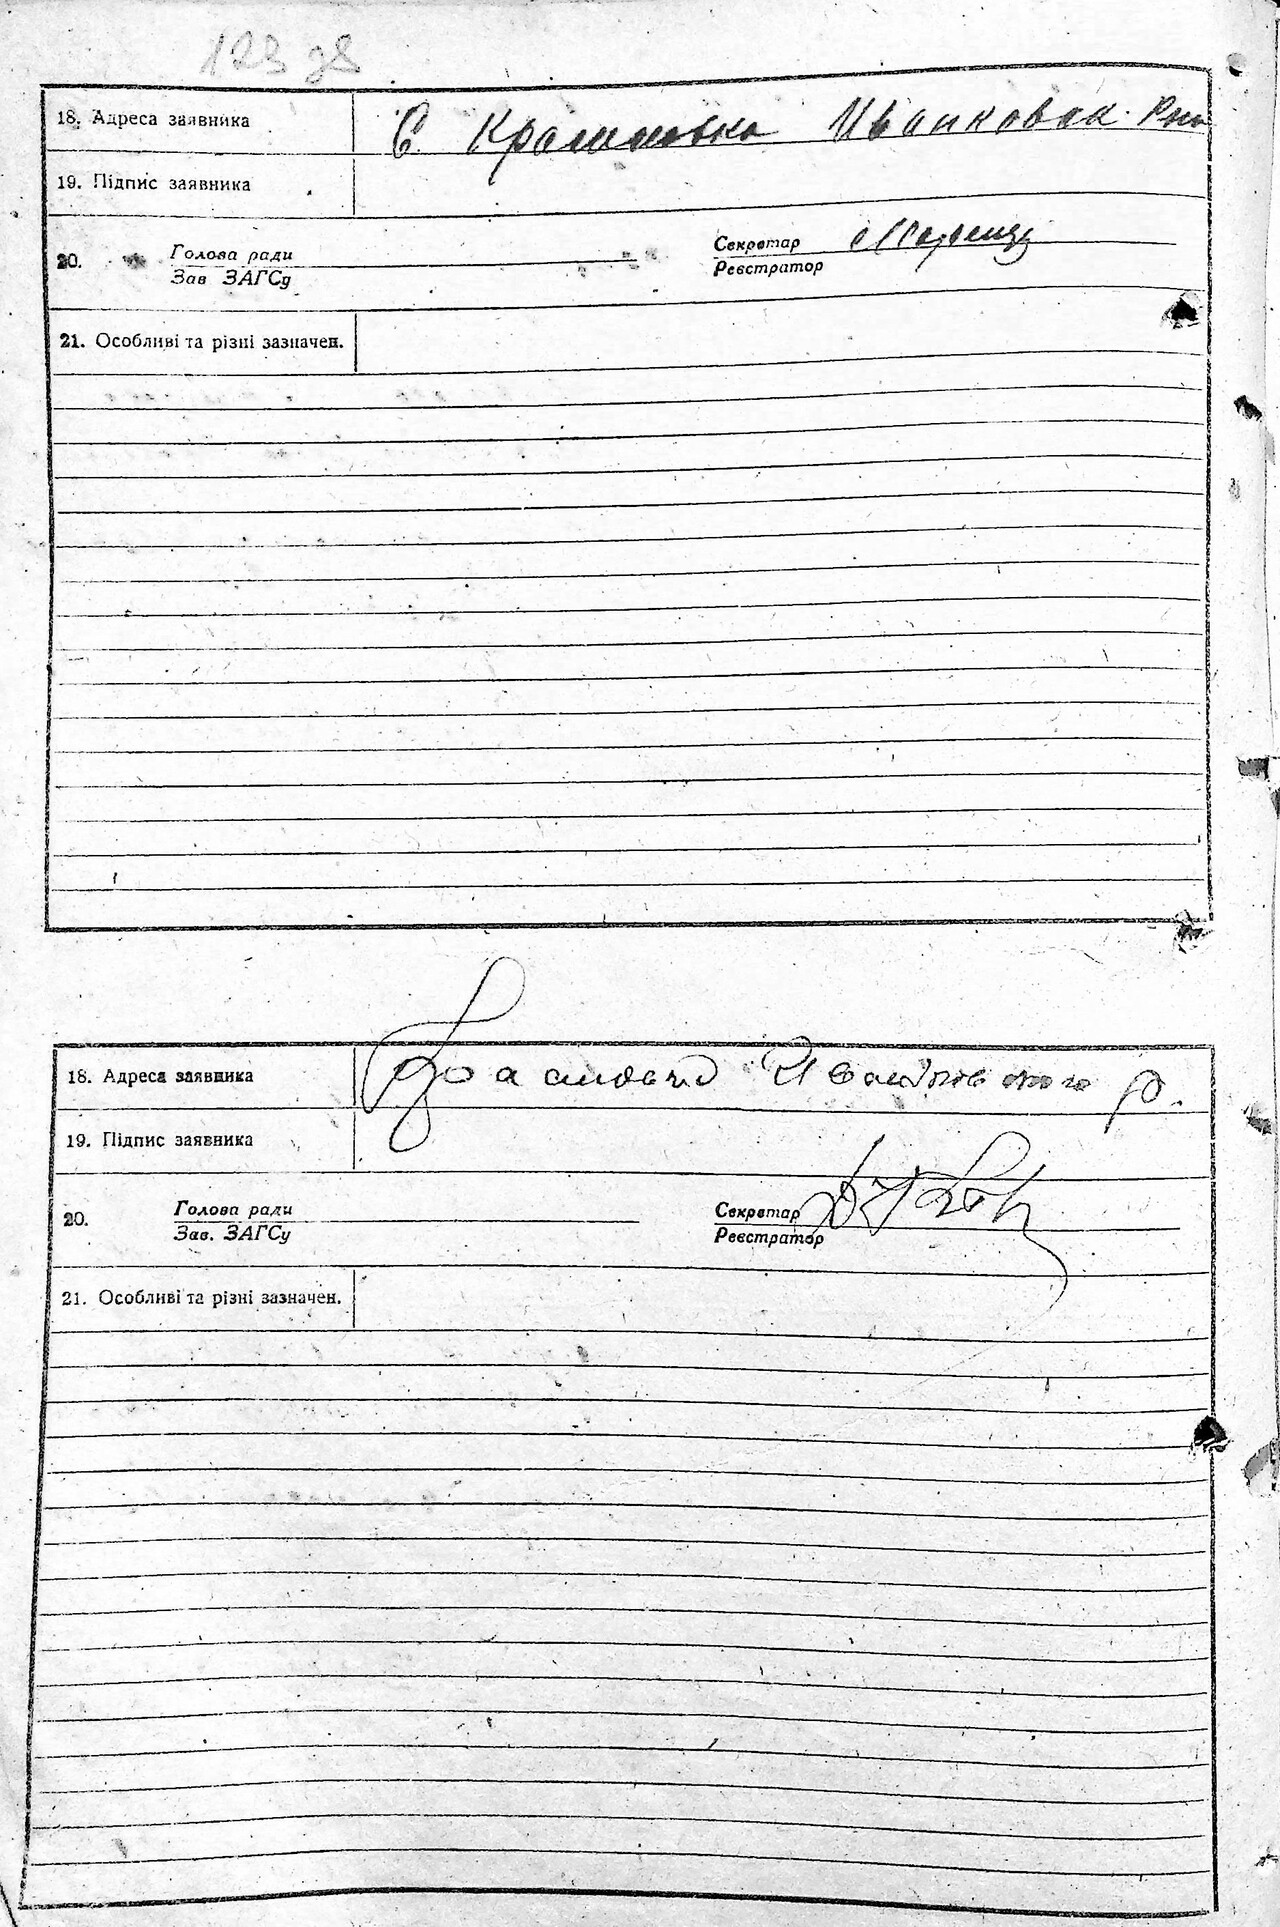 123 зв
18. Адреса заявника С Крамановка Иванковск. Рно
19. Підпис заявника
20. Голова ради Секретар
Зав ЗАГСу Реєстратор
21. Особливі та різні зазначен.
18. Адреса заявника Иванковского р.
19. Підпис заявника
20. Голова ради Секретар
Зав. ЗАГСу Реєстратор
21. Особливі та різні зазначен.